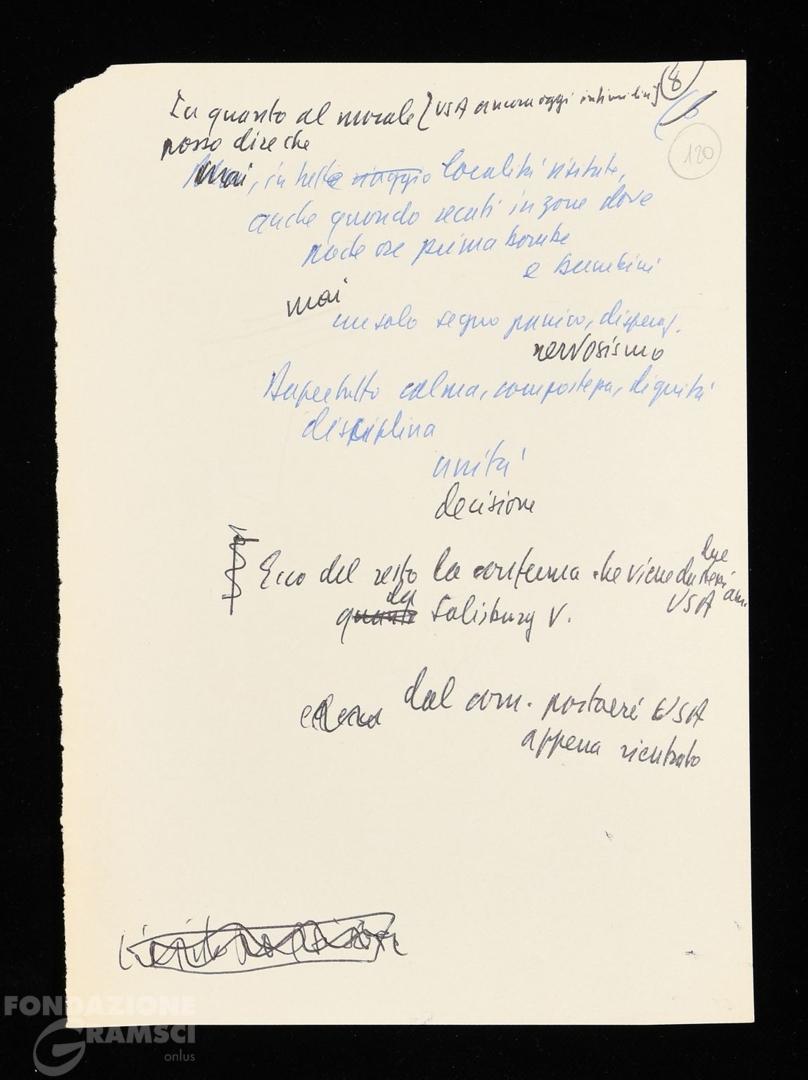 (8
120
In quanto al morale [USA ancora oggi intimidire]
posso dire che
mai, in tutte viaggio località visitate,
anche quando recati in zone dove
poche ore prima bombe
e bambini
mai
un solo segno panico, disperaz.
nervosismo
Soprattutto calma, compostezza, dignità
disciplina
unità
decisione
Ecco del resto la conferma che viene da due
USA am.
da Salisbury V.
dal com. portaerei USA
appena rientrato
FONDAZIONE
GRAMSCI
onlus